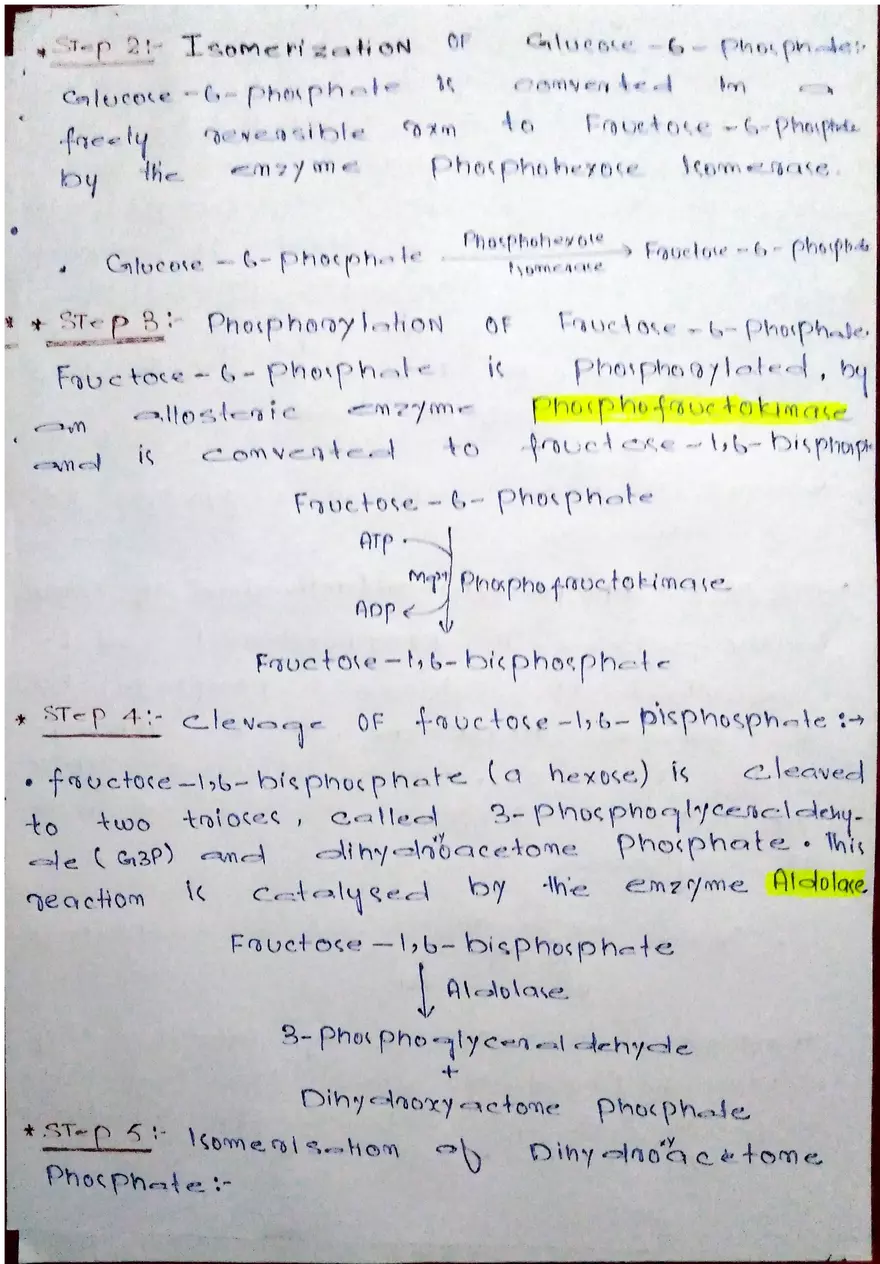 * STep 2:- Isomerization OF Glucose-6-Phosphate:-
Glucose-6-phosphate is converted in a
freely reversible rxn to Fructose-6-phosphate
by the enzyme Phosphohexose Isomerase.
• Glucose-6-phosphate Phosphohexose → Fructose-6-phosphate
Isomerase
* * STep 3:- Phosphorylation OF Fructose-6-phosphate.
Fructose-6-Phosphate is phosphorylated, by
an allosteric enzyme phosphofructokinase
and is converted to fructose-1,6-bisphosph
Fructose-6-phosphate
ATP
Mg²⁺ Phosphofructokinase
ADP
Fructose-1,6-bisphosphate
* STep 4:- Clevage OF fructose-1,6-bisphosphate :→
• fructose-1,6-bisphosphate (a hexose) is cleaved
to two trioses, called 3-phosphoglyceraldehy-
de (G3P) and dihydroxyacetone phosphate. This
reaction is catalysed by the enzyme Aldolase
Fructose-1,6-bisphosphate
↓ Aldolase
3-phosphoglyceraldehyde
+
Dihydroxyactone phosphate
* STep 5:- Isomerisation of Dihydroxyacetone
Phosphate:-